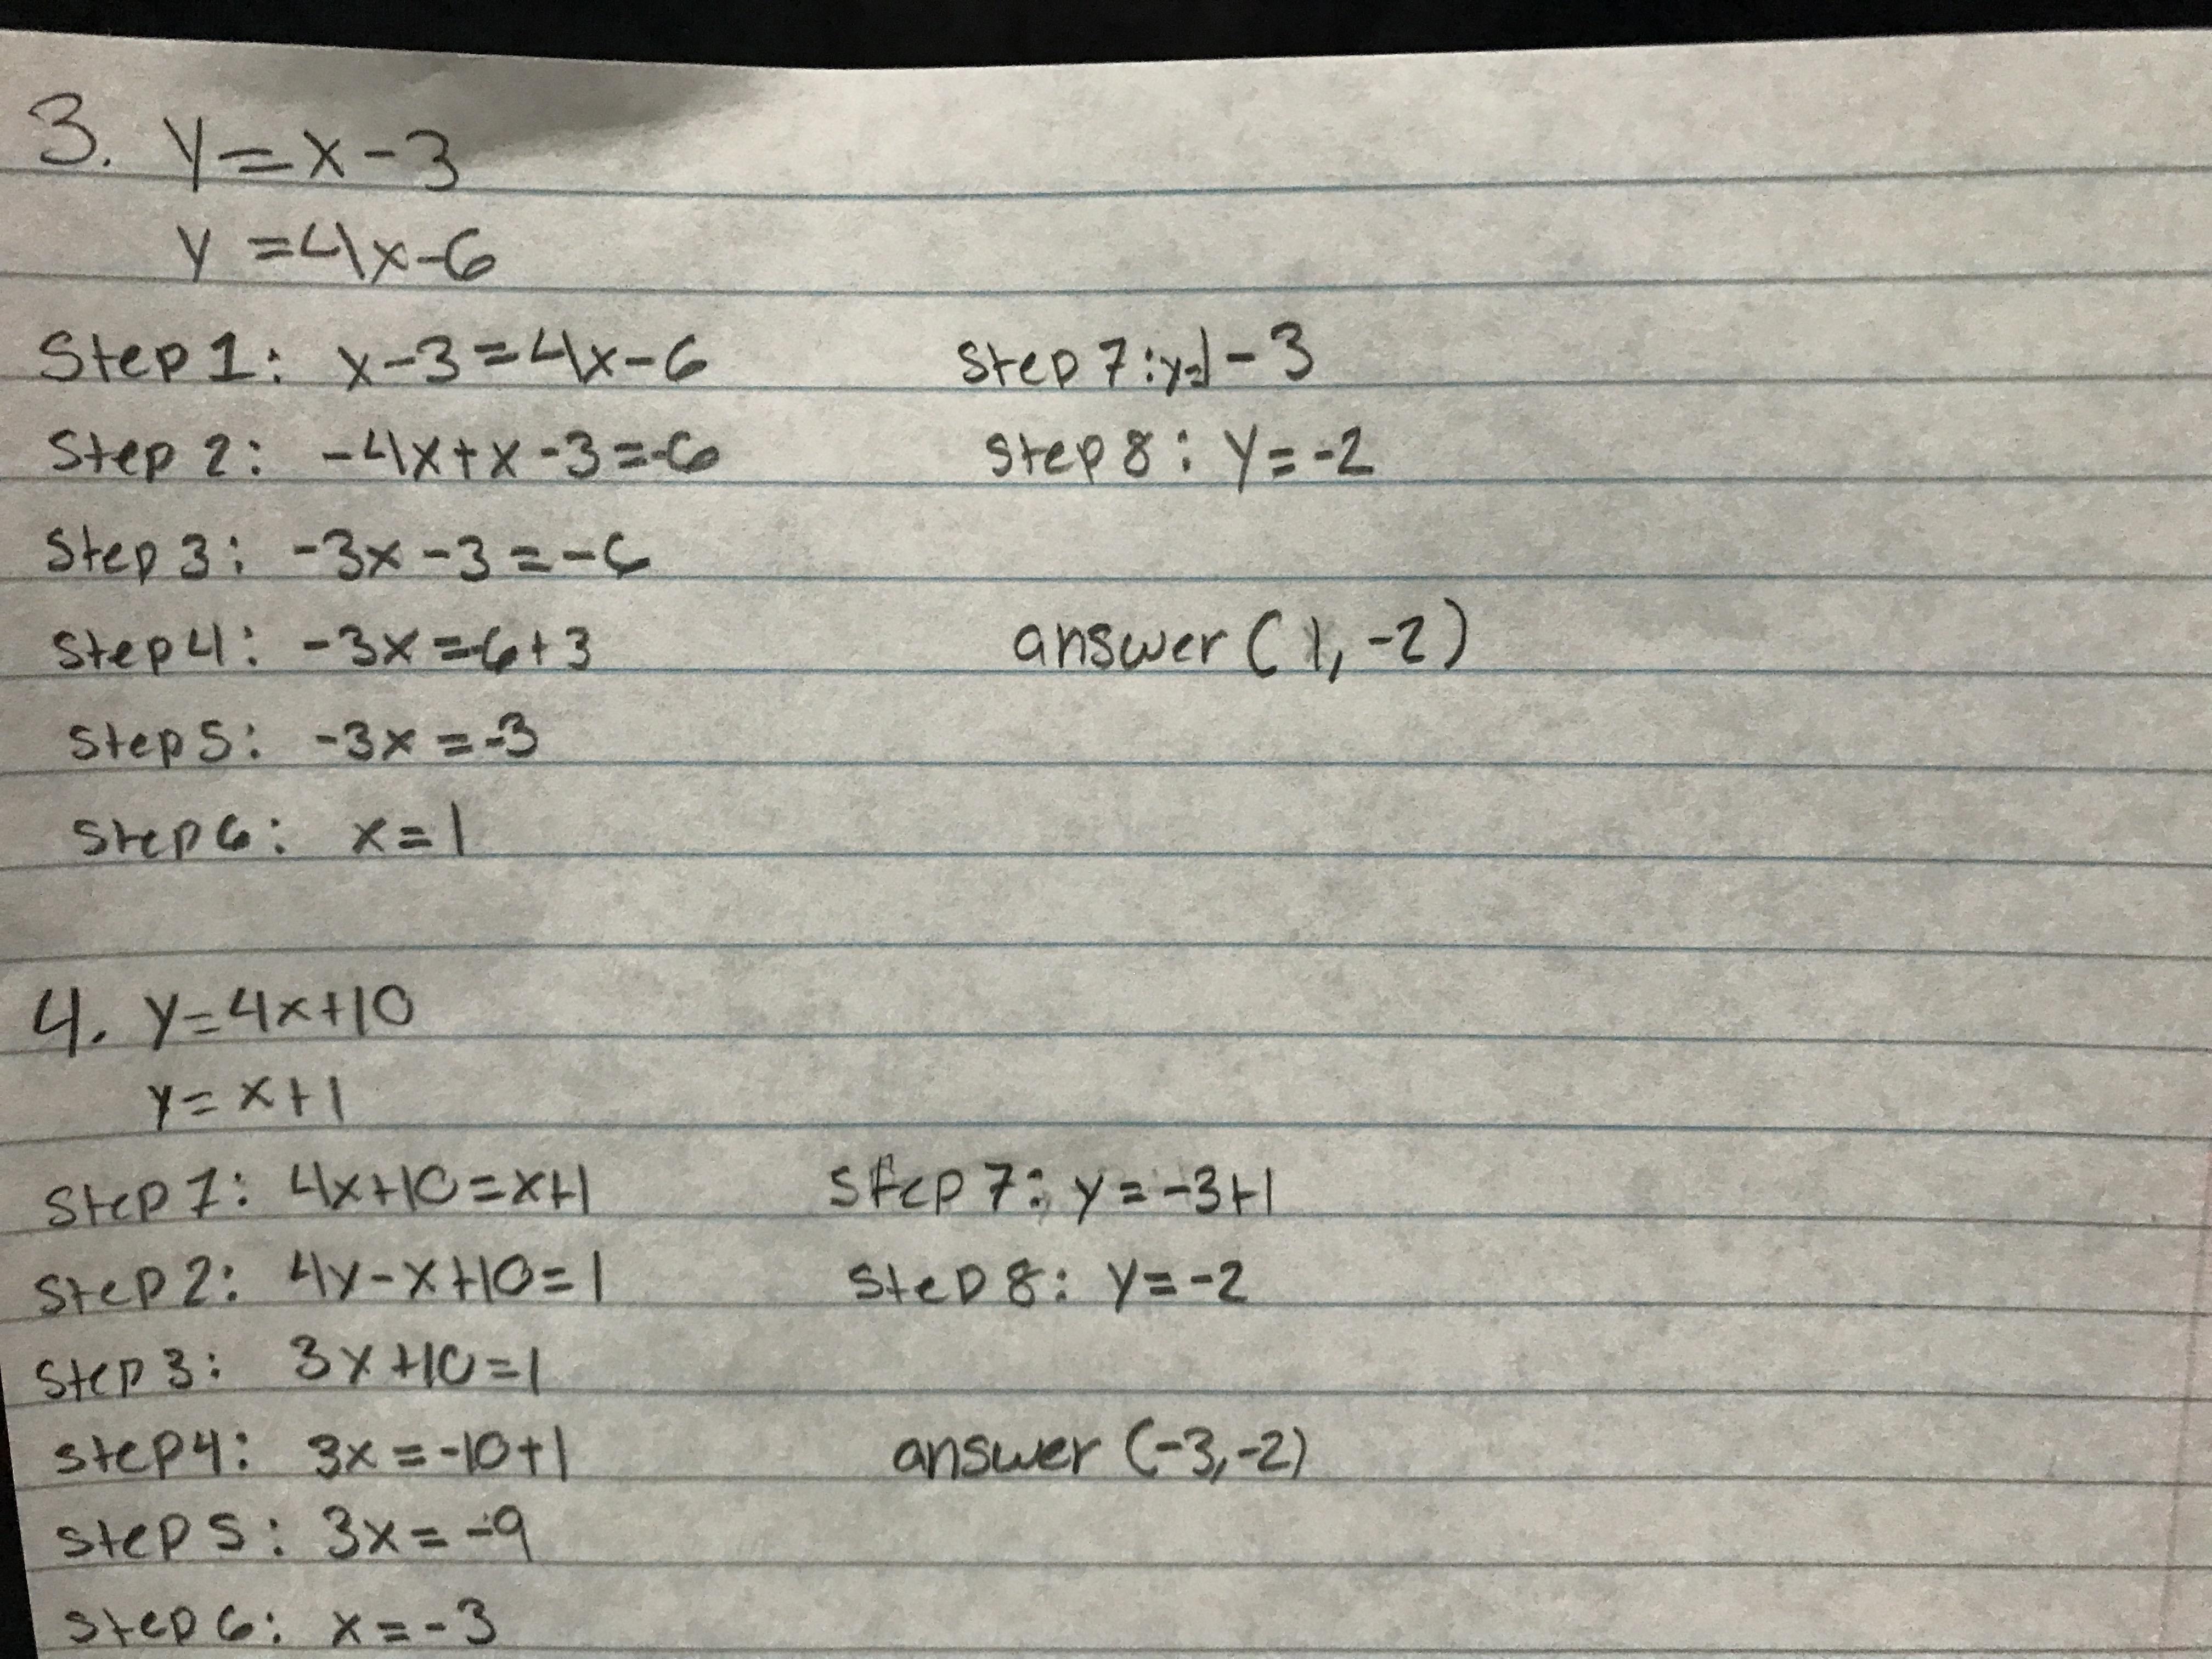 3. y=x-3
y=4x-6
Step 1: x-3=4x-6
Step 2: -4x+x-3=-6
Step 3: -3x-3=-6
Step 4: -3x=-6+3
Step 5: -3x=-3
Step 6: x=1
Step 7: y=1-3
Step 8: y=-2
answer (1,-2)
4. y=4x+10
y=x+1
Step 1: 4x+10=x+1
Step 2: 4x-x+10=1
Step 3: 3x+10=1
Step 4: 3x=-10+1
Step 5: 3x=-9
Step 6: x=-3
Step 7: y=-3+1
Step 8: y=-2
answer (-3,-2)